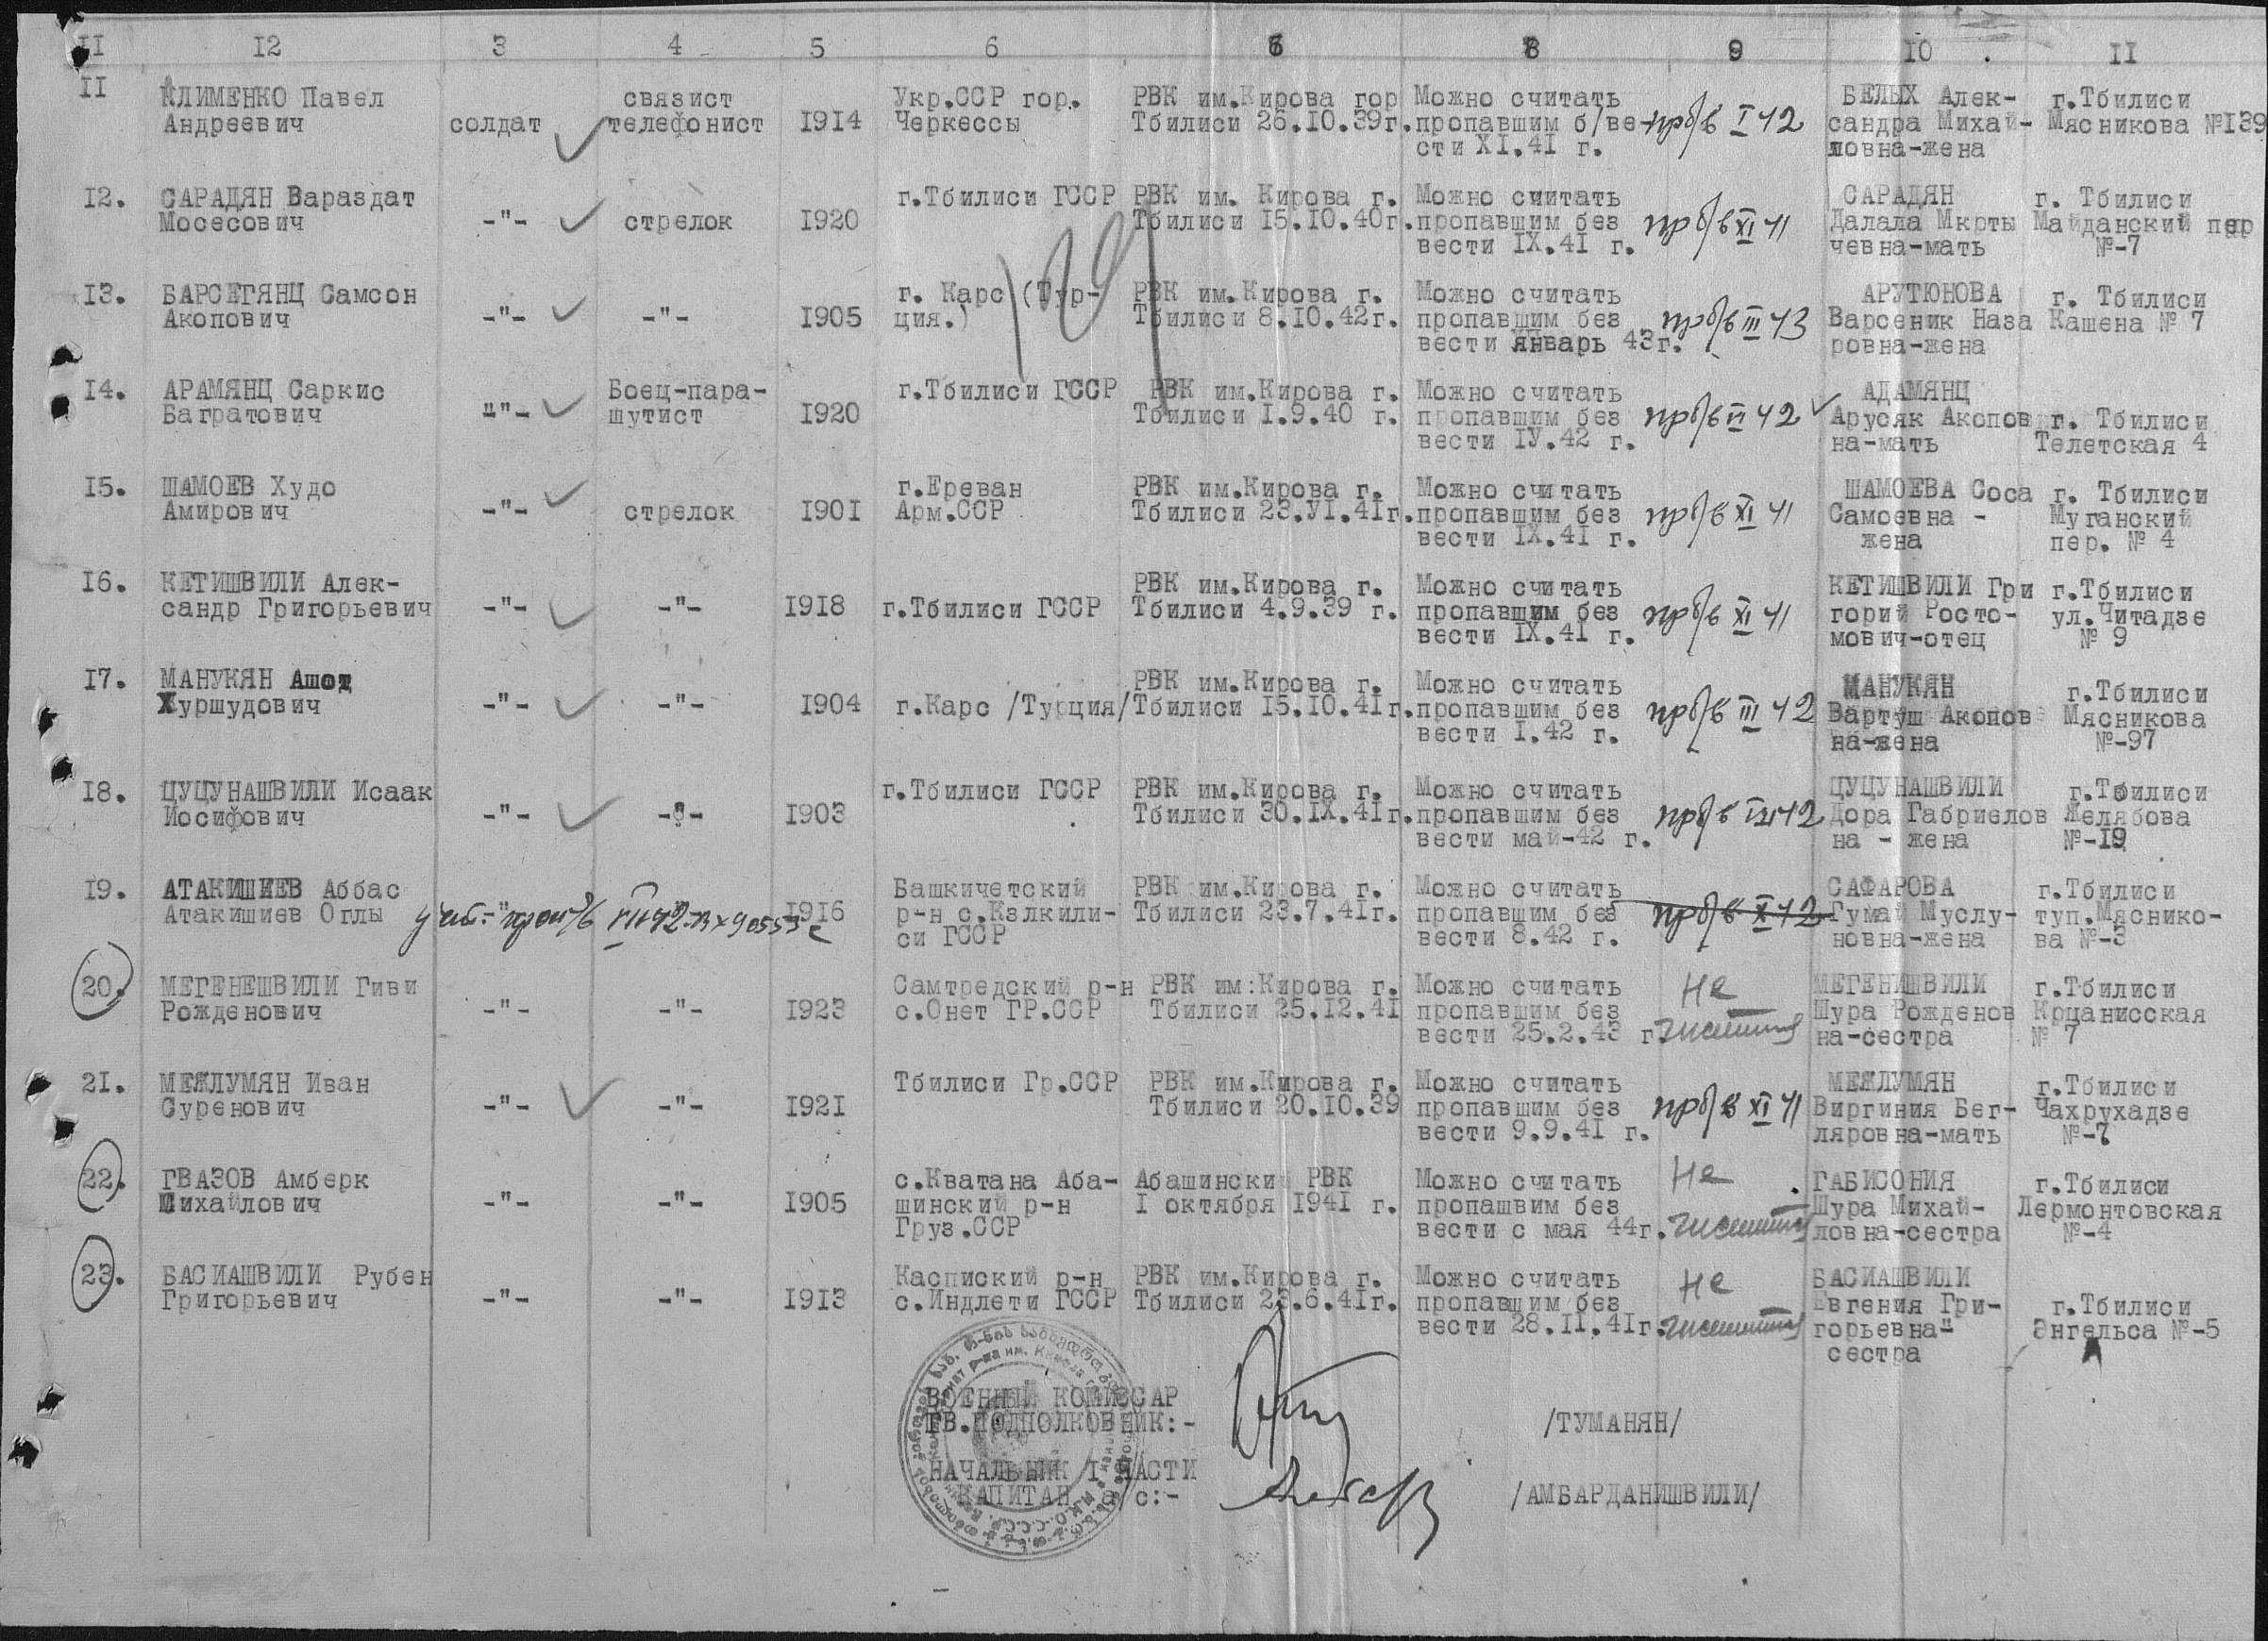 II 12 3 4 5 6 8 9 10 II
II КЛИМЕНКО Павел связист Укр.ССР гор. РВК им.Кирова гор Можно считать БЕЛЫХ Алек- г.Тбилиси
Андреевич солдат телефонист 1914 Черкессы Тбилиси 26.10.39г. пропавшим б/ве- пр б/в I 42 сандра Михай- Мясникова №139
сти XI.41 г. ловна-жена
12. САРАДЯН Вараздат г.Тбилиси ГССР РВК им. Кирова г. Можно считать САРАДЯН г. Тбилиси
Мосесович -"- стрелок 1920 Тбилиси 15.10.40г. пропавшим без пр б/в XI 41 Далала Мкрты Майданский пер
вести IX.41 г. чевна-мать №-7
13. БАРСЕГЯНЦ Самсон г. Карс (Тур- РВК им.Кирова г. Можно считать АРУТЮНОВА г. Тбилиси
Акопович -"- -"- 1905 ция.) Тбилиси 8.10.42г. пропавшим без пр б/в III 43 Варсеник Наза Кашена № 7
вести январь 43г. ровна-жена
14. АРАМЯНЦ Саркис Боец-пара- г.Тбилиси ГССР РВК им.Кирова г. Можно считать АДАМЯНЦ
Багратович -"- шутист 1920 Тбилиси 1.9.40 г. пропавшим без пр б/в VI 42 Арусяк Акопов г. Тбилиси
вести IУ.42 г. на-мать Телетская 4
15. ШАМОЕВ Худо г.Ереван РВК им.Кирова г. Можно считать ШАМОЕВА Соса г. Тбилиси
Амирович -"- стрелок 1901 Арм.ССР Тбилиси 23.УI.41г. пропавшим без пр б/в XI 41 Самоевна - Муганский
вести IX.41 г. жена пер. № 4
16. КЕТИШВИЛИ Алек- РВК им.Кирова г. Можно считать КЕТИШВИЛИ Гри г.Тбилиси
сандр Григорьевич -"- -"- 1918 г.Тбилиси ГССР Тбилиси 4.9.39 г. пропавшим без пр б/в XI 41 горий Росто- ул.Читадзе
вести IX.41 г. мович-отец № 9
17. МАНУКЯН Ашот РВК им.Кирова г. Можно считать МАНУКЯН г.Тбилиси
Хуршудович -"- -"- 1904 г.Карс /Турция/ Тбилиси 15.10.41г. пропавшим без пр б/в III 42 Вартуш Акопов Мясникова
вести I.42 г. на-жена №-97
18. ЦУЦУНАШВИЛИ Исаак г.Тбилиси ГССР РВК им.Кирова г. Можно считать ЦУЦУНАШВИЛИ г.Тбилиси
Иосифович -"- -"- 1903 Тбилиси 30.IX.41г. пропавшим без пр б/в 42 Дора Габриелов Желябова
вести май-42 г. на - жена №-19
19. АТАКИШИЕВ Аббас Башкичетский РВК им.Кирова г. Можно считать САФАРОВА г.Тбилиси
Атакишиев Оглы -"- 1916 р-н с.Кзлкили- Тбилиси 23.7.41г. пропавшим без пр б/в X 42 Гумай Муслу- туп.Мяснико-
си ГССР вести 8.42 г. новна-жена ва №-3
20. МЕГЕНЕШВИЛИ Гиви Самтредский р-н РВК им:Кирова г. Можно считать Не МЕГЕНИШВИЛИ г.Тбилиси
Рожденович -"- -"- 1923 с.Онет ГР.ССР Тбилиси 25.12.41 пропавшим без Шура Рожденов Крцанисская
вести 25.2.43 г. на-сестра № 7
21. МЕЖЛУМЯН Иван Тбилиси Гр.ССР РВК им.Кирова г. Можно считать МЕЖЛУМЯН г.Тбилиси
Суренович -"- -"- 1921 Тбилиси 20.10.39 пропавшим без пр б/в XI 41 Виргиния Бег- Чахрухадзе
вести 9.9.41 г. ляровна-мать №-7
22. ГВАЗОВ Амберк с.Кватана Аба- Абашинский РВК Можно считать Не ГАБИСОНИЯ г.Тбилиси
Михайлович -"- -"- 1905 шинский р-н 1 октября 1941 г. пропашвим без Шура Михай- Лермонтовская
Груз.ССР вести с мая 44г. ловна-сестра №-4
23. БАСИАШВИЛИ Рубен Каспиский р-н РВК им.Кирова г. Можно считать Не БАСИАШВИЛИ
Григорьевич -"- -"- 1913 с.Индлети ГССР Тбилиси 23.6.41г. пропавшим без Евгения Гри- г.Тбилиси
вести 28.II.41г. горьевна- Энгельса №-5
сестра
ВОЕННЫЙ КОМИССАР
ГВ.ПОДПОЛКОВНИК:- /ТУМАНЯН/
НАЧАЛЬНИК I ЧАСТИ
КАПИТАН с:- /АМБАРДАНИШВИЛИ/